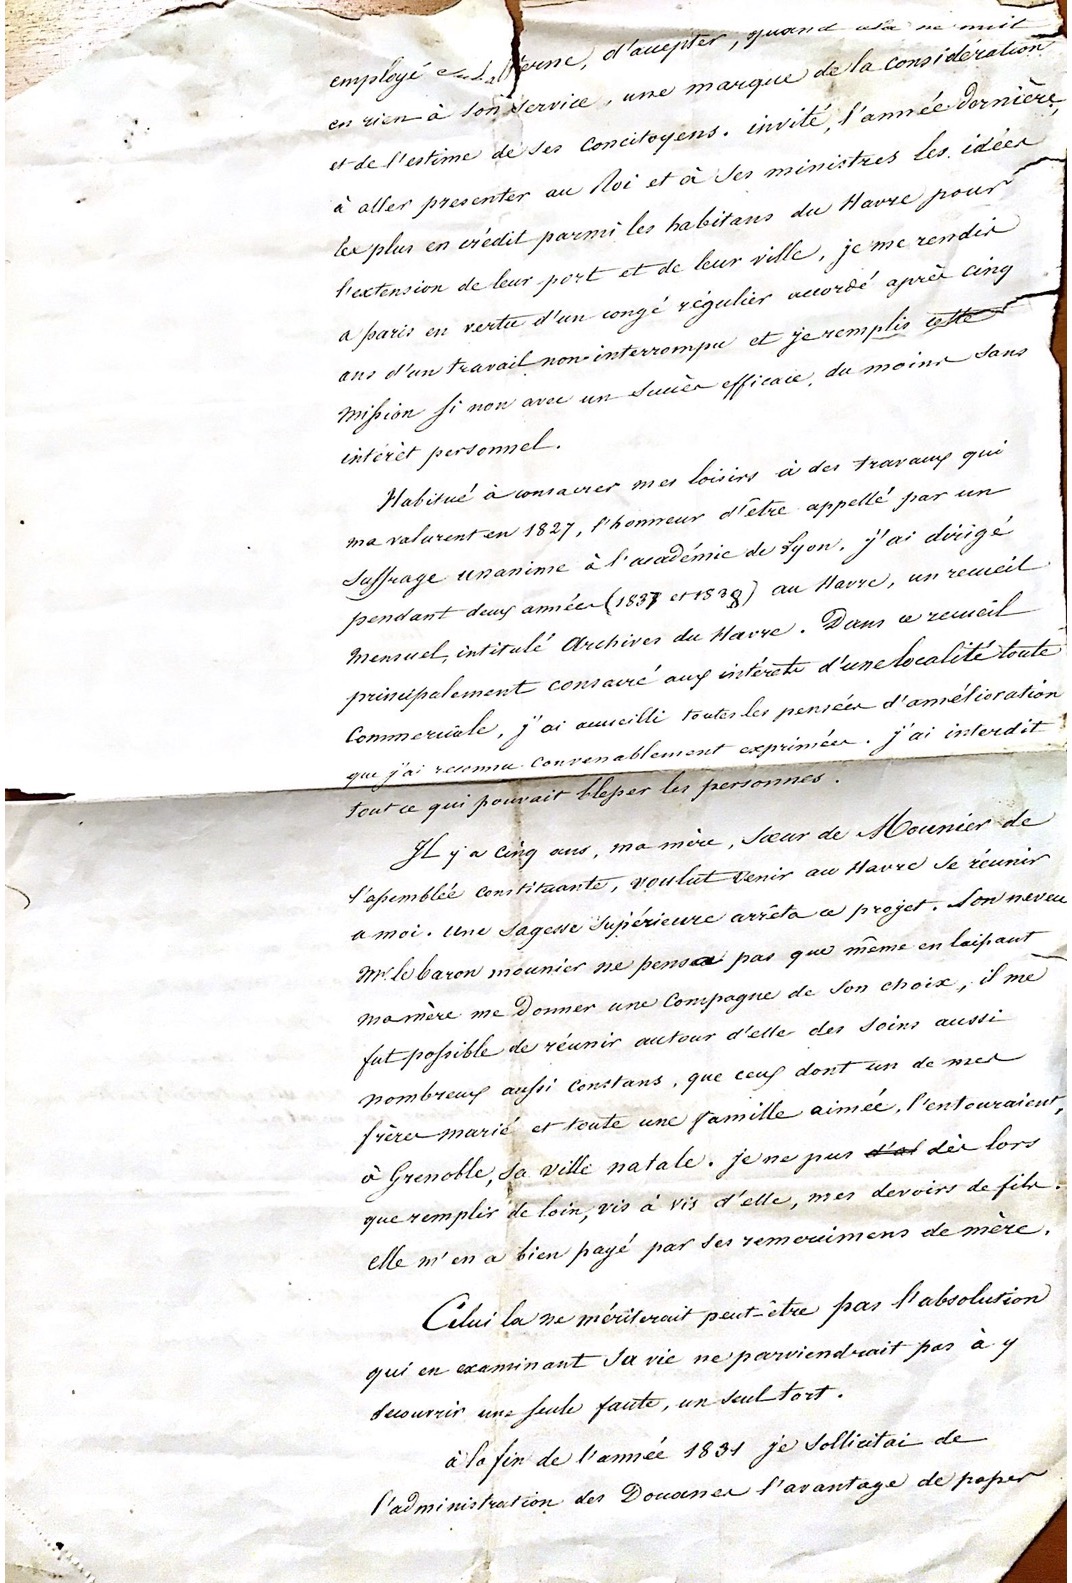 employé subalterne, d'accepter, quand cela ne nuit
en rien à son service, une marque de la considération
et de l'estime de ses concitoyens. invité, l'année dernière,
à aller presenter au Roi et à ses ministres les idées
les plus en crédit parmi les habitans du Havre pour
l'extension de leur port et de leur ville, je me rendis
a paris en vertu d'un congé régulier accordé après cinq
ans d'un travail non-interrompu et je remplis cette
mission si non avec un succès efficace, du moins sans
intérêt personnel.
Habitué à consacrer mes loisirs à des travaux qui
me valurent en 1827, l'honneur d'être appellé par un
suffrage unanime à l'académie de Lyon, j'ai dirigé
pendant deux années (1837 et 1838) au Havre, un recueil
mensuel, intitulé Archives du Havre. Dans ce recueil
principalement consacré aux intérêts d'une localité toute
commerciale, j'ai accueilli toutes les pensées d'amélioration
que j'ai reconnu convenablement exprimées. j'ai interdit
tout ce qui pouvait blesser les personnes.
Il y a cinq ans, ma mère, sœur de Mounier de
l'assemblée constituante, voulut venir au Havre se réunir
a moi. une sagesse supérieure arrêta ce projet. Son neveu
Mr. le baron mounier ne pensa pas que même en laissant
ma mère me donner une compagne de son choix, il me
fut possible de réunir autour d'elle des soins aussi
nombreux aussi constans, que ceux dont un de mes
frères marié et toute une famille aimée, l'entouraient,
à Grenoble, sa ville natale. je ne pus dès lors
que remplir de loin, vis à vis d'elle, mes devoirs de fils.
elle m'en a bien payé par ses remercimens de mère.
Celui la ne mériterait peut-être pas l'absolution
qui en examinant sa vie ne parviendrait pas à y
decouvrir une seule faute, un seul tort.
à la fin de l'année 1831 je sollicitai de
l'administration des Douanes l'avantage de passer